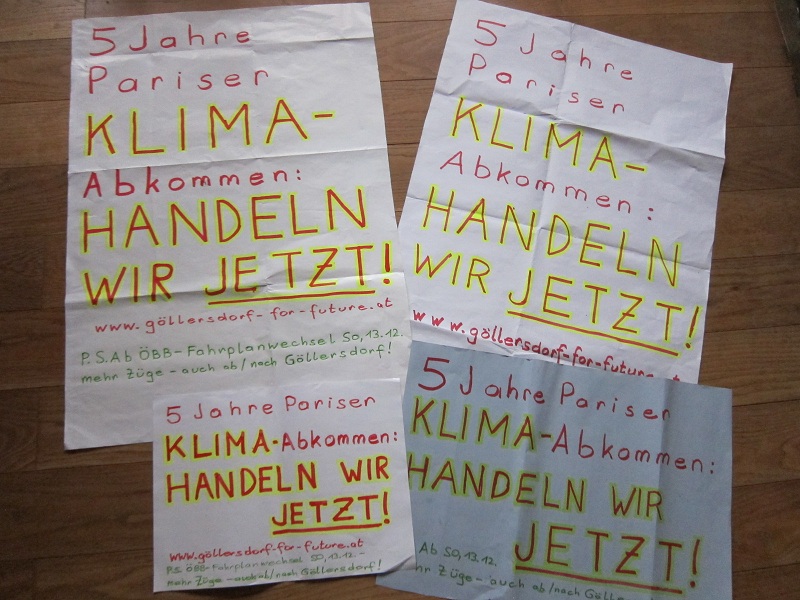 5 Jahre
Pariser
KLIMA-
Abkommen:
HANDELN
WIR JETZT!
www.göllersdorf-for-future.at
P.S. Ab ÖBB-Fahrplanwechsel So, 13.12.
mehr Züge - auch ab/nach Göllersdorf!
5 Jahre
Pariser
KLIMA-
Abkommen:
HANDELN
WIR JETZT!
www.göllersdorf-for-future.at
5 Jahre Pariser
KLIMA-Abkommen:
HANDELN WIR
JETZT!
www.göllersdorf-for-future.at
P.S. ÖBB-Fahrplanwechsel SO, 13.12. -
mehr Züge - auch ab/nach Göllersdorf!
5 Jahre Pariser
KLIMA-Abkommen:
HANDELN WIR
JETZT!
Ab SO, 13.12.
hr Züge - auch ab/nach Göllers